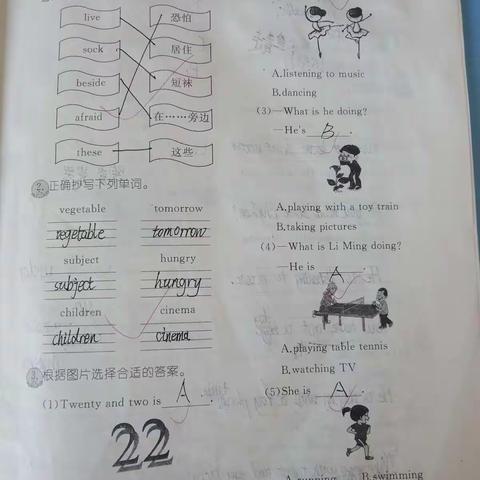 live 恐怕
sock 居住
beside 短袜
afraid 在……旁边
these 这些
2.正确抄写下列单词。
vegetable tomorrow
vegetable tomorrow
subject hungry
subject hungry
children cinema
children cinema
3.根据图片选择合适的答案。
(1)Twenty and two is A.
22
A.listening to music
B.dancing
(3)—What is he doing?
—He's B.
A.playing with a toy train
B.taking pictures
(4)—What is Li Ming doing?
—He is A
A.playing table tennis
B.watching TV
(5)She is A.
A.running B.swimming